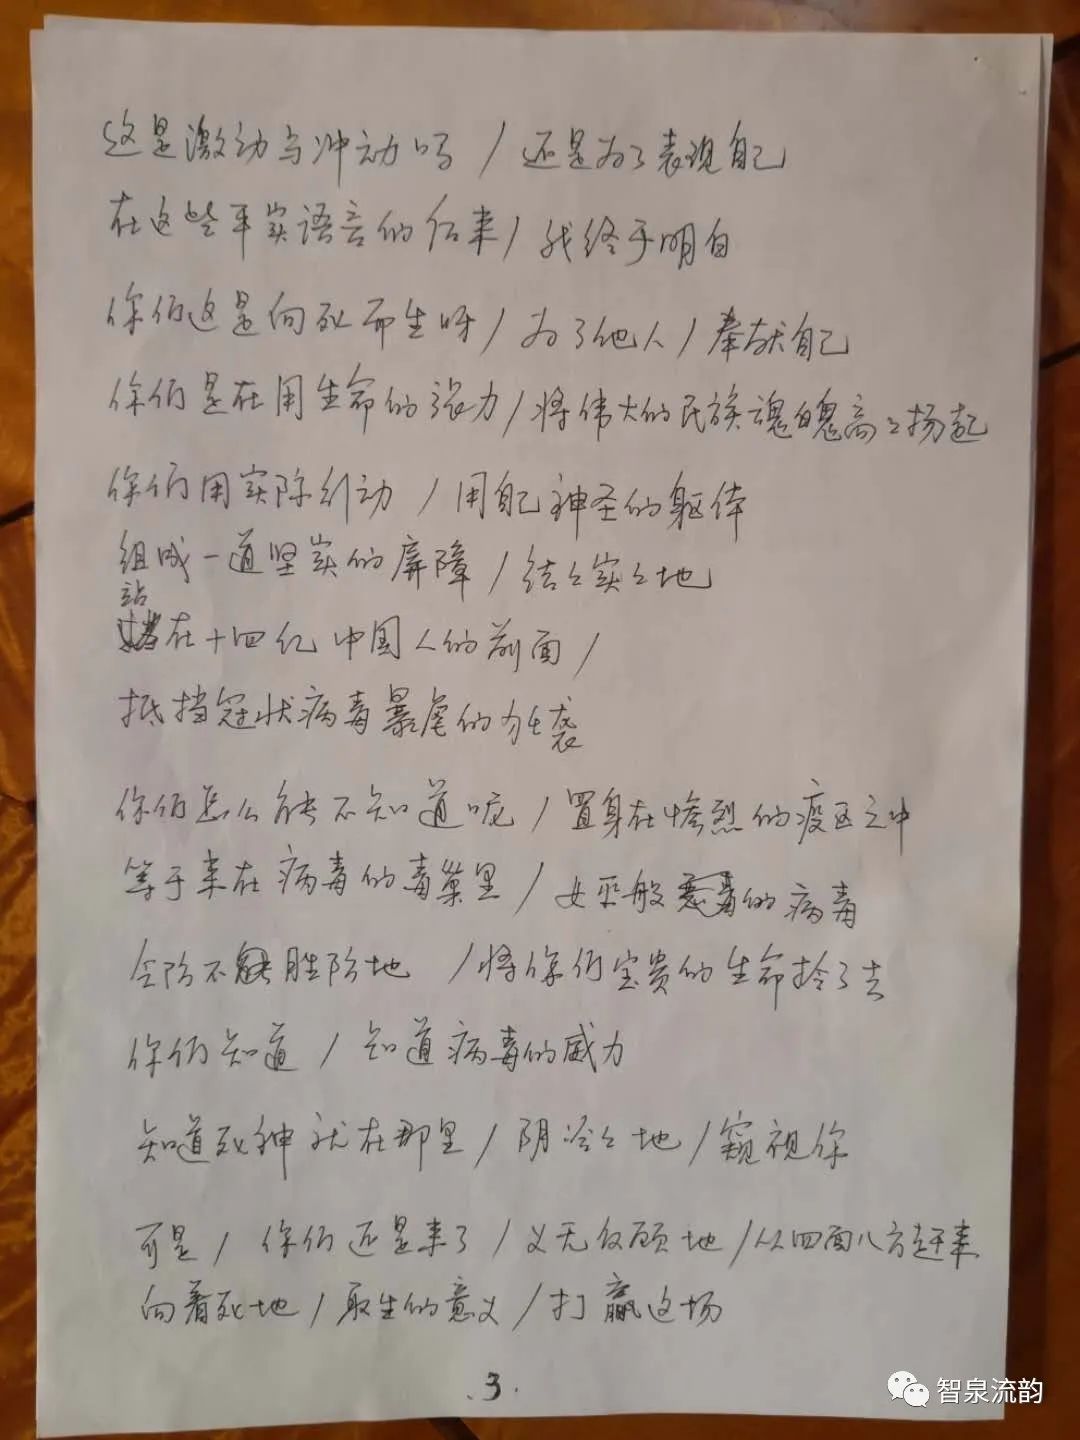 这是激动与冲动吗 / 还是为了表现自己
在这些平实语言的后来 / 我终于明白
你们这是向死而生呀 / 为了他人 / 奉献自己
你们是在用生命的张力 / 将伟大的民族魂魄高々扬起
你们用实际行动 / 用自己神圣的躯体
组成一道坚实的屏障 / 结々实々地
站在十四亿中国人的前面 /
抵挡冠状病毒暴虐的侵袭
你们怎么能不知道呢 / 置身在惨烈的疫区之中
等于来在病毒的毒巢里 / 女巫般恶毒的病毒
会防不胜防地 / 将你们宝贵的生命拎了去
你们知道 / 知道病毒的威力
知道死神就在那里 / 阴冷々地 / 窥视你
可是 / 你们还是来了 / 义无反顾地 / 从四面八方赶来
向着死地 / 取生的意义 / 打赢这场
.3.
智泉流韵